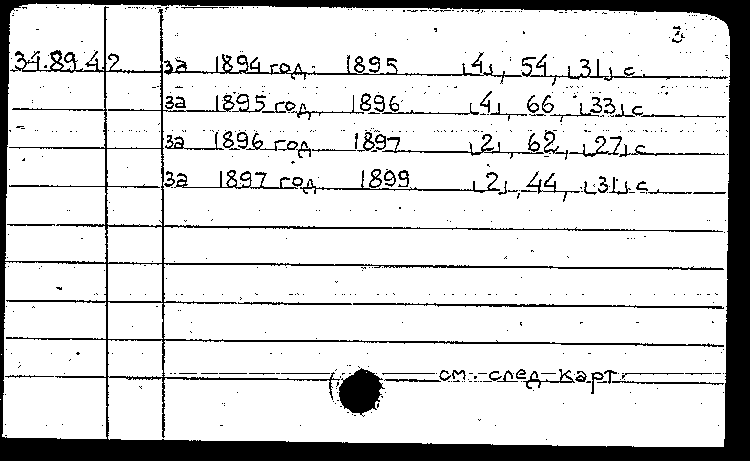 3
34.89.4.2 за 1894 год. 1895 [4], 54, [31] с.
за 1895 год. 1896. [4], 66, [33] с.
за 1896 год 1897 [2], 62, [27] с.
за 1897 год 1899 [2], 44, [31] с.
см. след. карт.